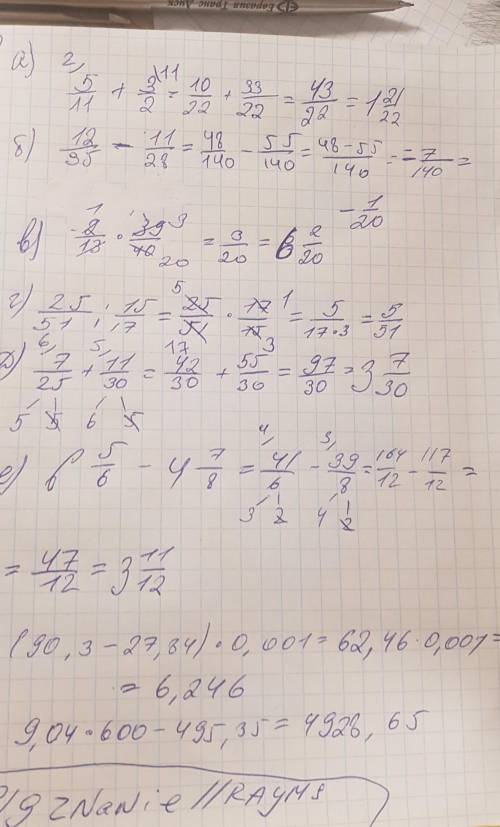 Евразия Транс Диск
а) 2, 5/11 + 3/2 11 = 10/22 + 33/22 = 43/22 = 1 21/22
б) 12/35 - 11/28 = 48/140 - 55/140 = 48-55/140 = -7/140 =
-1/20
в) 1 2/13 · 39 3/40 20 = 3/20 = 6 2/20
г) 25/51 : 15/17 = 5 25/51 · 17 1/15 3 = 5/17·3 = 5/51
Д) 6, 7/25 + 5, 11/30 = 42/30 + 55/30 = 97/30 = 3 7/30
5 5 6 5
е) 6 5/6 - 4 7/8 = 4, 41/6 - 3, 39/8 = 164/12 - 117/12 =
3 2 4 2
= 47/12 = 3 11/12
(90,3-27,84)·0,001=62,46·0,001=
=6,246
9,04·600-495,35=4928,65
zNaNie//RAYMS